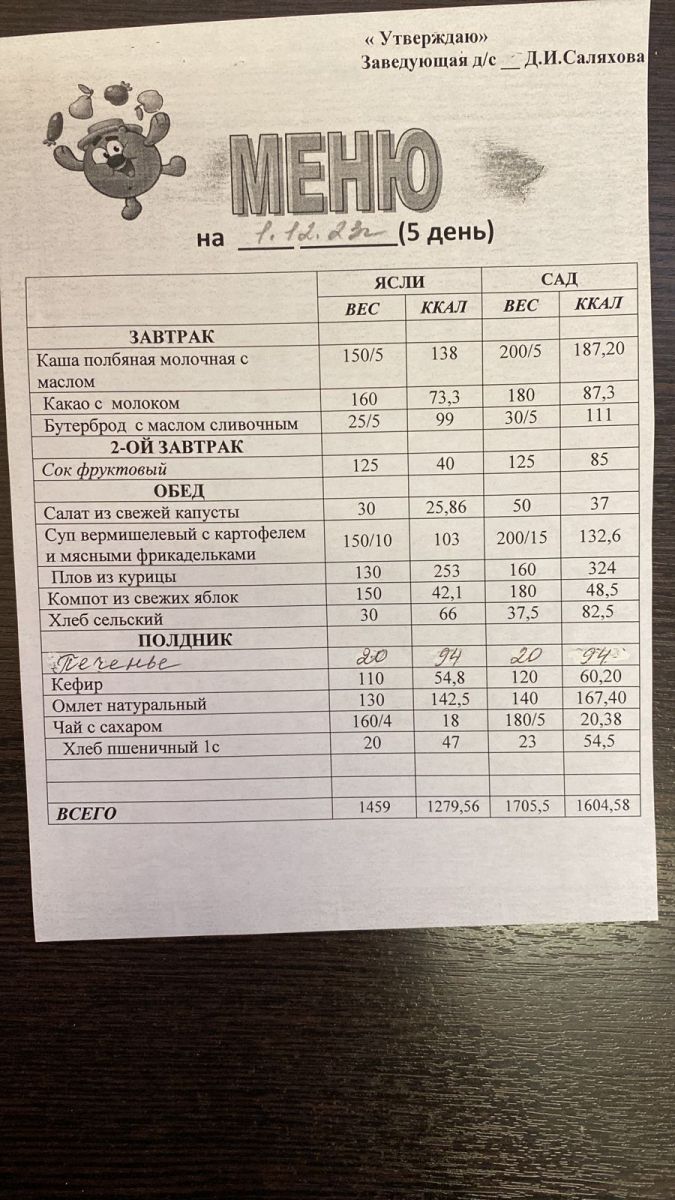 « Утверждаю»
Заведующая д/с __ Д.И.Саляхова
МЕНЮ
на 1.12.23г (5 день)
ЯСЛИ САД
ВЕС ККАЛ ВЕС ККАЛ
ЗАВТРАК
Каша полбяная молочная с 150/5 138 200/5 187,20
маслом
Какао с молоком 160 73,3 180 87,3
Бутерброд с маслом сливочным 25/5 99 30/5 111
2-ОЙ ЗАВТРАК
Сок фруктовый 125 40 125 85
ОБЕД
Салат из свежей капусты 30 25,86 50 37
Суп вермишелевый с картофелем
и мясными фрикадельками 150/10 103 200/15 132,6
Плов из курицы 130 253 160 324
Компот из свежих яблок 150 42,1 180 48,5
Хлеб сельский 30 66 37,5 82,5
ПОЛДНИК
Печенье 20 94 20 94
Кефир 110 54,8 120 60,20
Омлет натуральный 130 142,5 140 167,40
Чай с сахаром 160/4 18 180/5 20,38
Хлеб пшеничный 1с 20 47 23 54,5
ВСЕГО 1459 1279,56 1705,5 1604,58